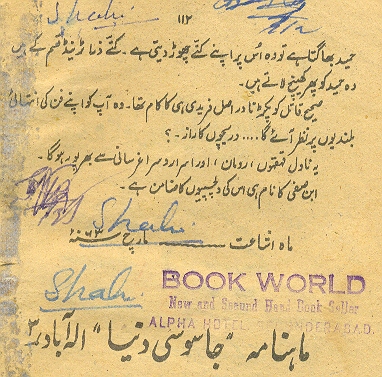 Shahi
۱۱۲
حمید بھاگتا ہے تو وہ اُس پر اپنے کتے چھوڑ دیتی ہے۔ کتے ذرا ٹرینڈ قسم کے ہیں
وہ حمید کو پھر کھینچ لاتے ہیں۔
صحیح قاتل کو پکڑنا دراصل فریدی ہی کا کام تھا۔ وہ آپ کو اپنے فن کی انتہائی
بلندیوں پر نظر آئے گا.... دریچوں کا راز۔ ؟
یہ ناول قہقہوں، رومان، اور اسرار و سراغرسانی سے بھرپور ہوگا۔
ابن صفی کا نام ہی اس کی دلچسپیوں کا ضامن ہے۔
Shahi
ماہ اشاعت مارچ سنہ ۶۳ء
Shahi
BOOK WORLD
New and Second Hand Book Seller
ALPHA HOTEL DERABAD.
ماہنامہ "جاسوسی دنیا" الہ آباد ۳